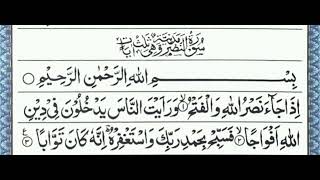 سورة النصر مدنية وهي ثلث ايات
بِسْمِ اللهِ الرَّحْمٰنِ الرَّحِيْمِ
اِذَا جَآءَ نَصْرُ اللهِ وَالْفَتْحُ ۙ۱ وَرَاَيْتَ النَّاسَ يَدْخُلُوْنَ فِيْ دِيْنِ
اللهِ اَفْوَاجًا ۙ۲ فَسَبِّحْ بِحَمْدِ رَبِّكَ وَاسْتَغْفِرْهُ ؕ اِنَّهٗ كَانَ تَوَّابًا ۳